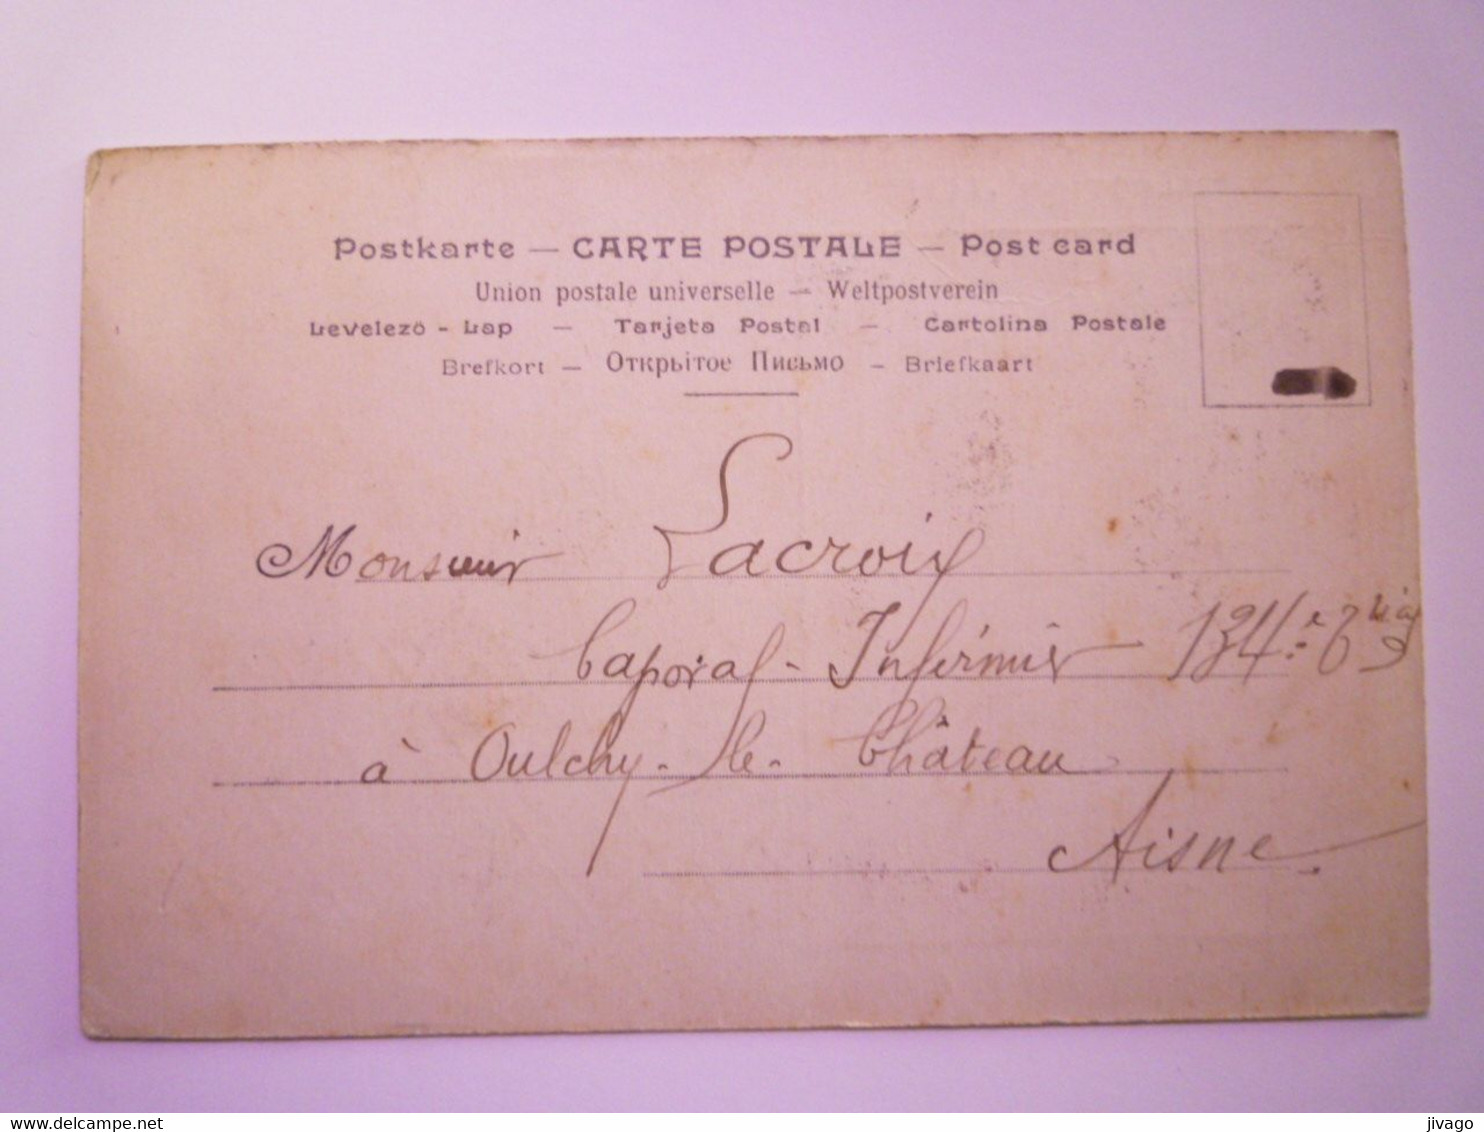 Postkarte — CARTE POSTALE — Post card
Union postale universelle — Weltpostverein
Levelezö - Lap — Tarjeta Postal — Cartolina Postale
Brefkort — Открытое Письмо — Briefkaart
Monsieur Lacroix
Caporal - Infirmier 134.e
à Oulchy-le-Château
Aisne.
www.delcampe.net
jivago